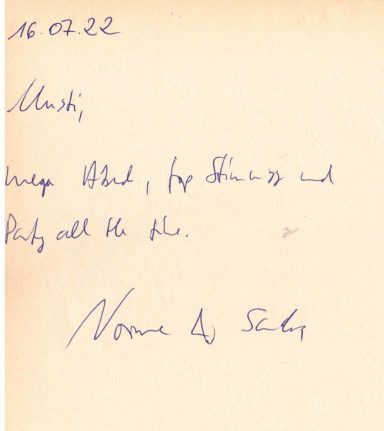 16.07.22
Musti,
mega Abend, top Stimmung und
Party all the time.